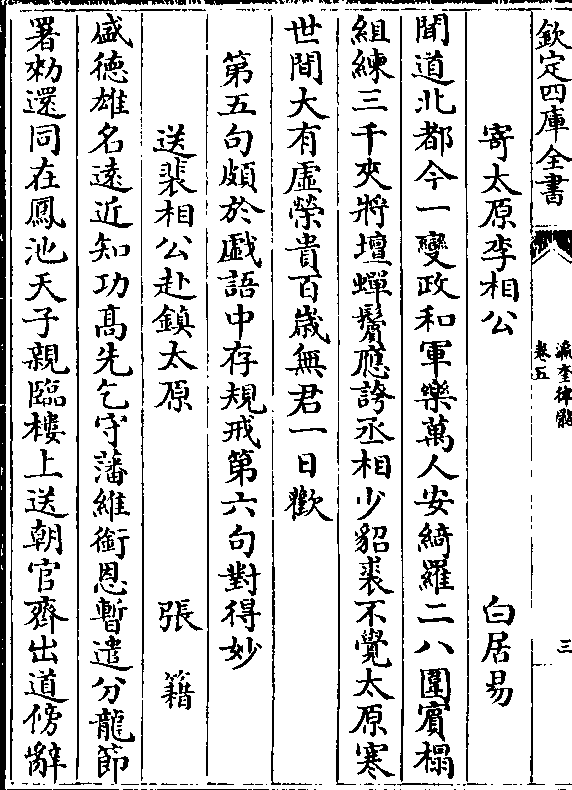 欽定四庫全書
瀛奎律髓
卷五
三
寄太原李相公 白居易
聞道北都今一變政和軍樂萬人安綺羅二八圍賓榻
組練三千夾將壇蟬鬢應誇丞相少貂裘不覺太原寒
世間大有虛榮貴百歲無君一日歡
第五句頗於戲語中存規戒第六句對得妙
送裴相公赴鎮太原 張籍
盛德雄名遠近知功髙先乞守藩維銜恩暫遣分龍節
署勑還同在鳳池天子親臨樓上送朝官齊出道傍辭